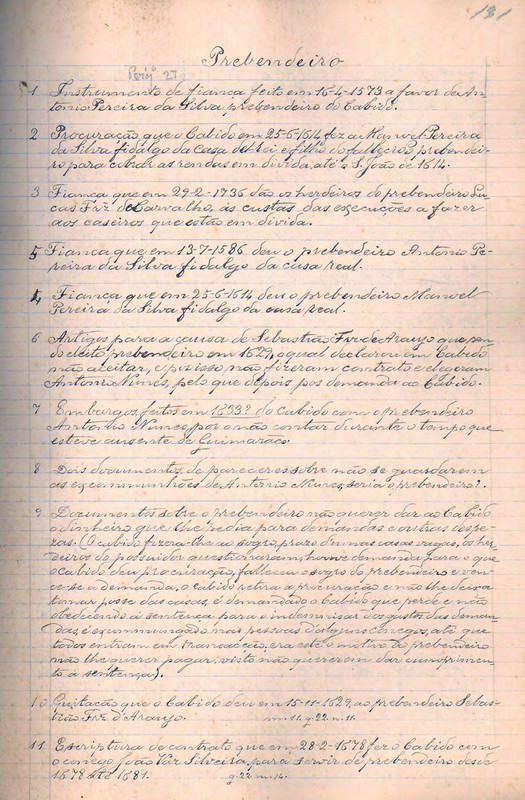 131
Prebendeiro
Perg.º 27
1 Instrumento de fiança feito em 16-4-1573 a favor de An-
tonio Pereira da Silva prebendeiro do Cabido.
2 Procuração que o Cabido em 25-6-1614 fez a Manoel Pereira
da Silva fidalgo da Casa del rei e filho do fallecido prebendei-
ro para cobrar as rendas em divida, até o S. João de 1614.
3 Fiança que em 29-2-1736 dão os herdeiros do prebendeiro Lu-
cas Frz de Carvalho, ás custas das execuções a fazer
aos caseiros que estão em divida.
5 Fiança que em 13-7-1586 deu o prebendeiro Antonio Pe-
reira da Silva fidalgo da casa real.
4 Fiança que em 25-6-1614 deu o prebendeiro Manoel
Pereira da Silva fidalgo da casa real.
6 Artigos para a causa de Sebastião Frz de Araujo que sen-
do eleito prebendeiro em 1629, o qual declarou em Cabido
não aceitar, e por isso não fizeram contrato e elegeram
Antonio Nunes, pelo que depois pos demanda ao Cabido.
7 Embargos feitos em 1693? do Cabido com o prebendeiro
Antonio Nunes, por o não contar durante o tempo que
esteve ausente de Guimarães.
8 Dois documentos de pareceres sobre não se guardarem
as excommunhões de Antonio Nunes, seria o prebendeiro?.
9 Documentos sobre o prebendeiro não querer dar ao Cabido
o dinheiro que lhe pedia para demandas e outras despe-
zas. (O cabido fizera-lhe ao sogro, prazo d'umas casas vagas, os her-
deiros do possuidor questionaram, houve demanda para o que
o Cabido deu procuração, falleceu o sogro do prebendeiro e ven-
ce-se a demanda, o cabido retira a procuração e não lhe deixa
tomar posse das casas, é demandado o Cabido que perde e não
obedecendo á sentença para o indemnisar dos gastos das deman-
das, é excommungado nas pessoas d'alguns conegos, até que
todos entram em transacção, era este o motivo do prebendeiro
não lhe querer pagar, visto não quererem dar cumprimen-
to á sentença).
10 Quitação que o Cabido deu em 15-11-1629, ao prebendeiro Sebas-
tião Frz d'Araujo. m. 11. g. 22. n. 11.
11 Escriptura de contrato que em 28-2-1678 fez o Cabido com
o conego João Vaz Silveira, para servir de prebendeiro desde
1678 até 1681. g. 22 m. 14.